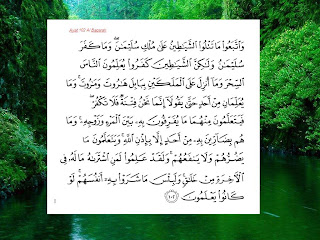 Ayat 102 Al Baqarah
وَاتَّبَعُوا مَا تَتْلُوا الشَّيَاطِينُ عَلَىٰ مُلْكِ سُلَيْمَٰنَ ۖ وَمَا كَفَرَ
سُلَيْمَٰنُ وَلَٰكِنَّ الشَّيَاطِينَ كَفَرُوا يُعَلِّمُونَ النَّاسَ
السِّحْرَ وَمَا أُنزِلَ عَلَى الْمَلَكَيْنِ بِبَابِلَ هَٰرُوتَ وَمَٰرُوتَ ۚ وَمَا
يُعَلِّمَانِ مِنْ أَحَدٍ حَتَّىٰ يَقُولَا إِنَّمَا نَحْنُ فِتْنَةٌ فَلَا تَكْفُرْ ۖ
فَيَتَعَلَّمُونَ مِنْهُمَا مَا يُفَرِّقُونَ بِهِ بَيْنَ الْمَرْءِ وَزَوْجِهِ ۚ وَمَا
هُم بِضَارِّينَ بِهِ مِنْ أَحَدٍ إِلَّا بِإِذْنِ اللَّهِ ۚ وَيَتَعَلَّمُونَ مَا
يَضُرُّهُمْ وَلَا يَنفَعُهُمْ ۚ وَلَقَدْ عَلِمُوا لَمَنِ اشْتَرَىٰهُ مَا لَهُ فِي
الْآخِرَةِ مِنْ خَلَٰقٍ ۚ وَلَبِئْسَ مَا شَرَوْا بِهِ أَنفُسَهُمْ ۚ لَوْ
كَانُوا يَعْلَمُونَ ١٠٢